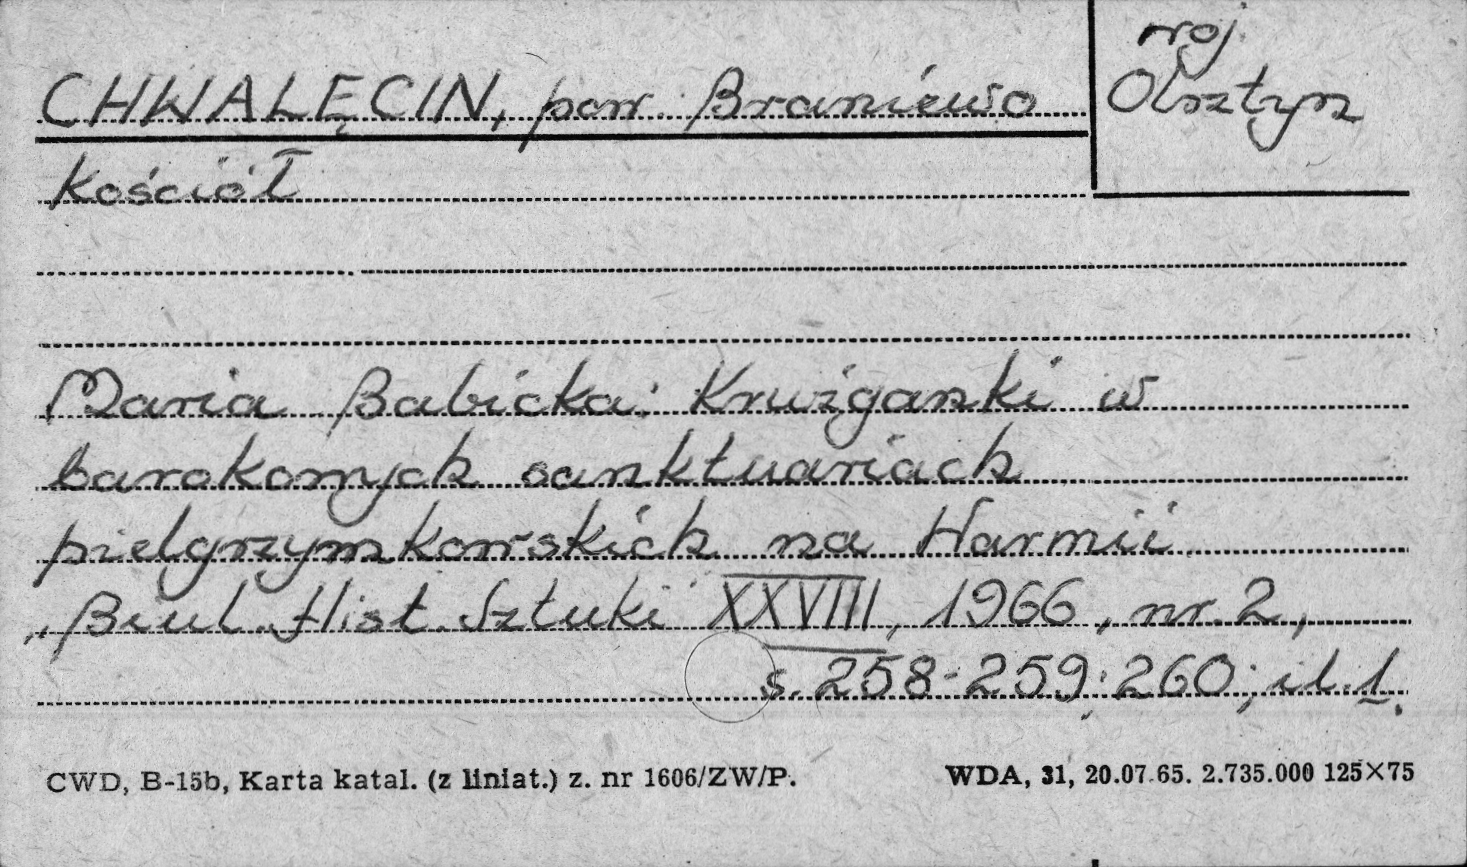 woj.
Olsztyn
CHWALĘCIN, pow. Braniewo
Kościół
Maria Babicka: Krużganki w
barokowych sanktuariach
pielgrzymkowskich na Warmii.
"Biul. Hist. Sztuki" XXVIII, 1966, nr. 2,
s. 258-259; 260; il. 1.
CWD, B-15b, Karta katal. (z liniat.) z. nr 1606/ZW/P.
WDA, 31, 20.07.65. 2.735.000 125×75